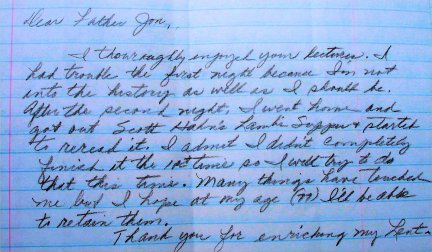 Dear Father Jon,
I thouroughly enjoyed your lectures. I
had trouble the first night because I'm not
into the history as well as I should be.
After the second night, I went home and
got out Scott Hahn's Lambs Supper & started
to reread it. I admit I didn't completely
finish it the last time so I will try to do
that this time. Many things have touched
me but I hope at my age (77) I'll be able
to retain them.
Thank you for enriching my Lent.